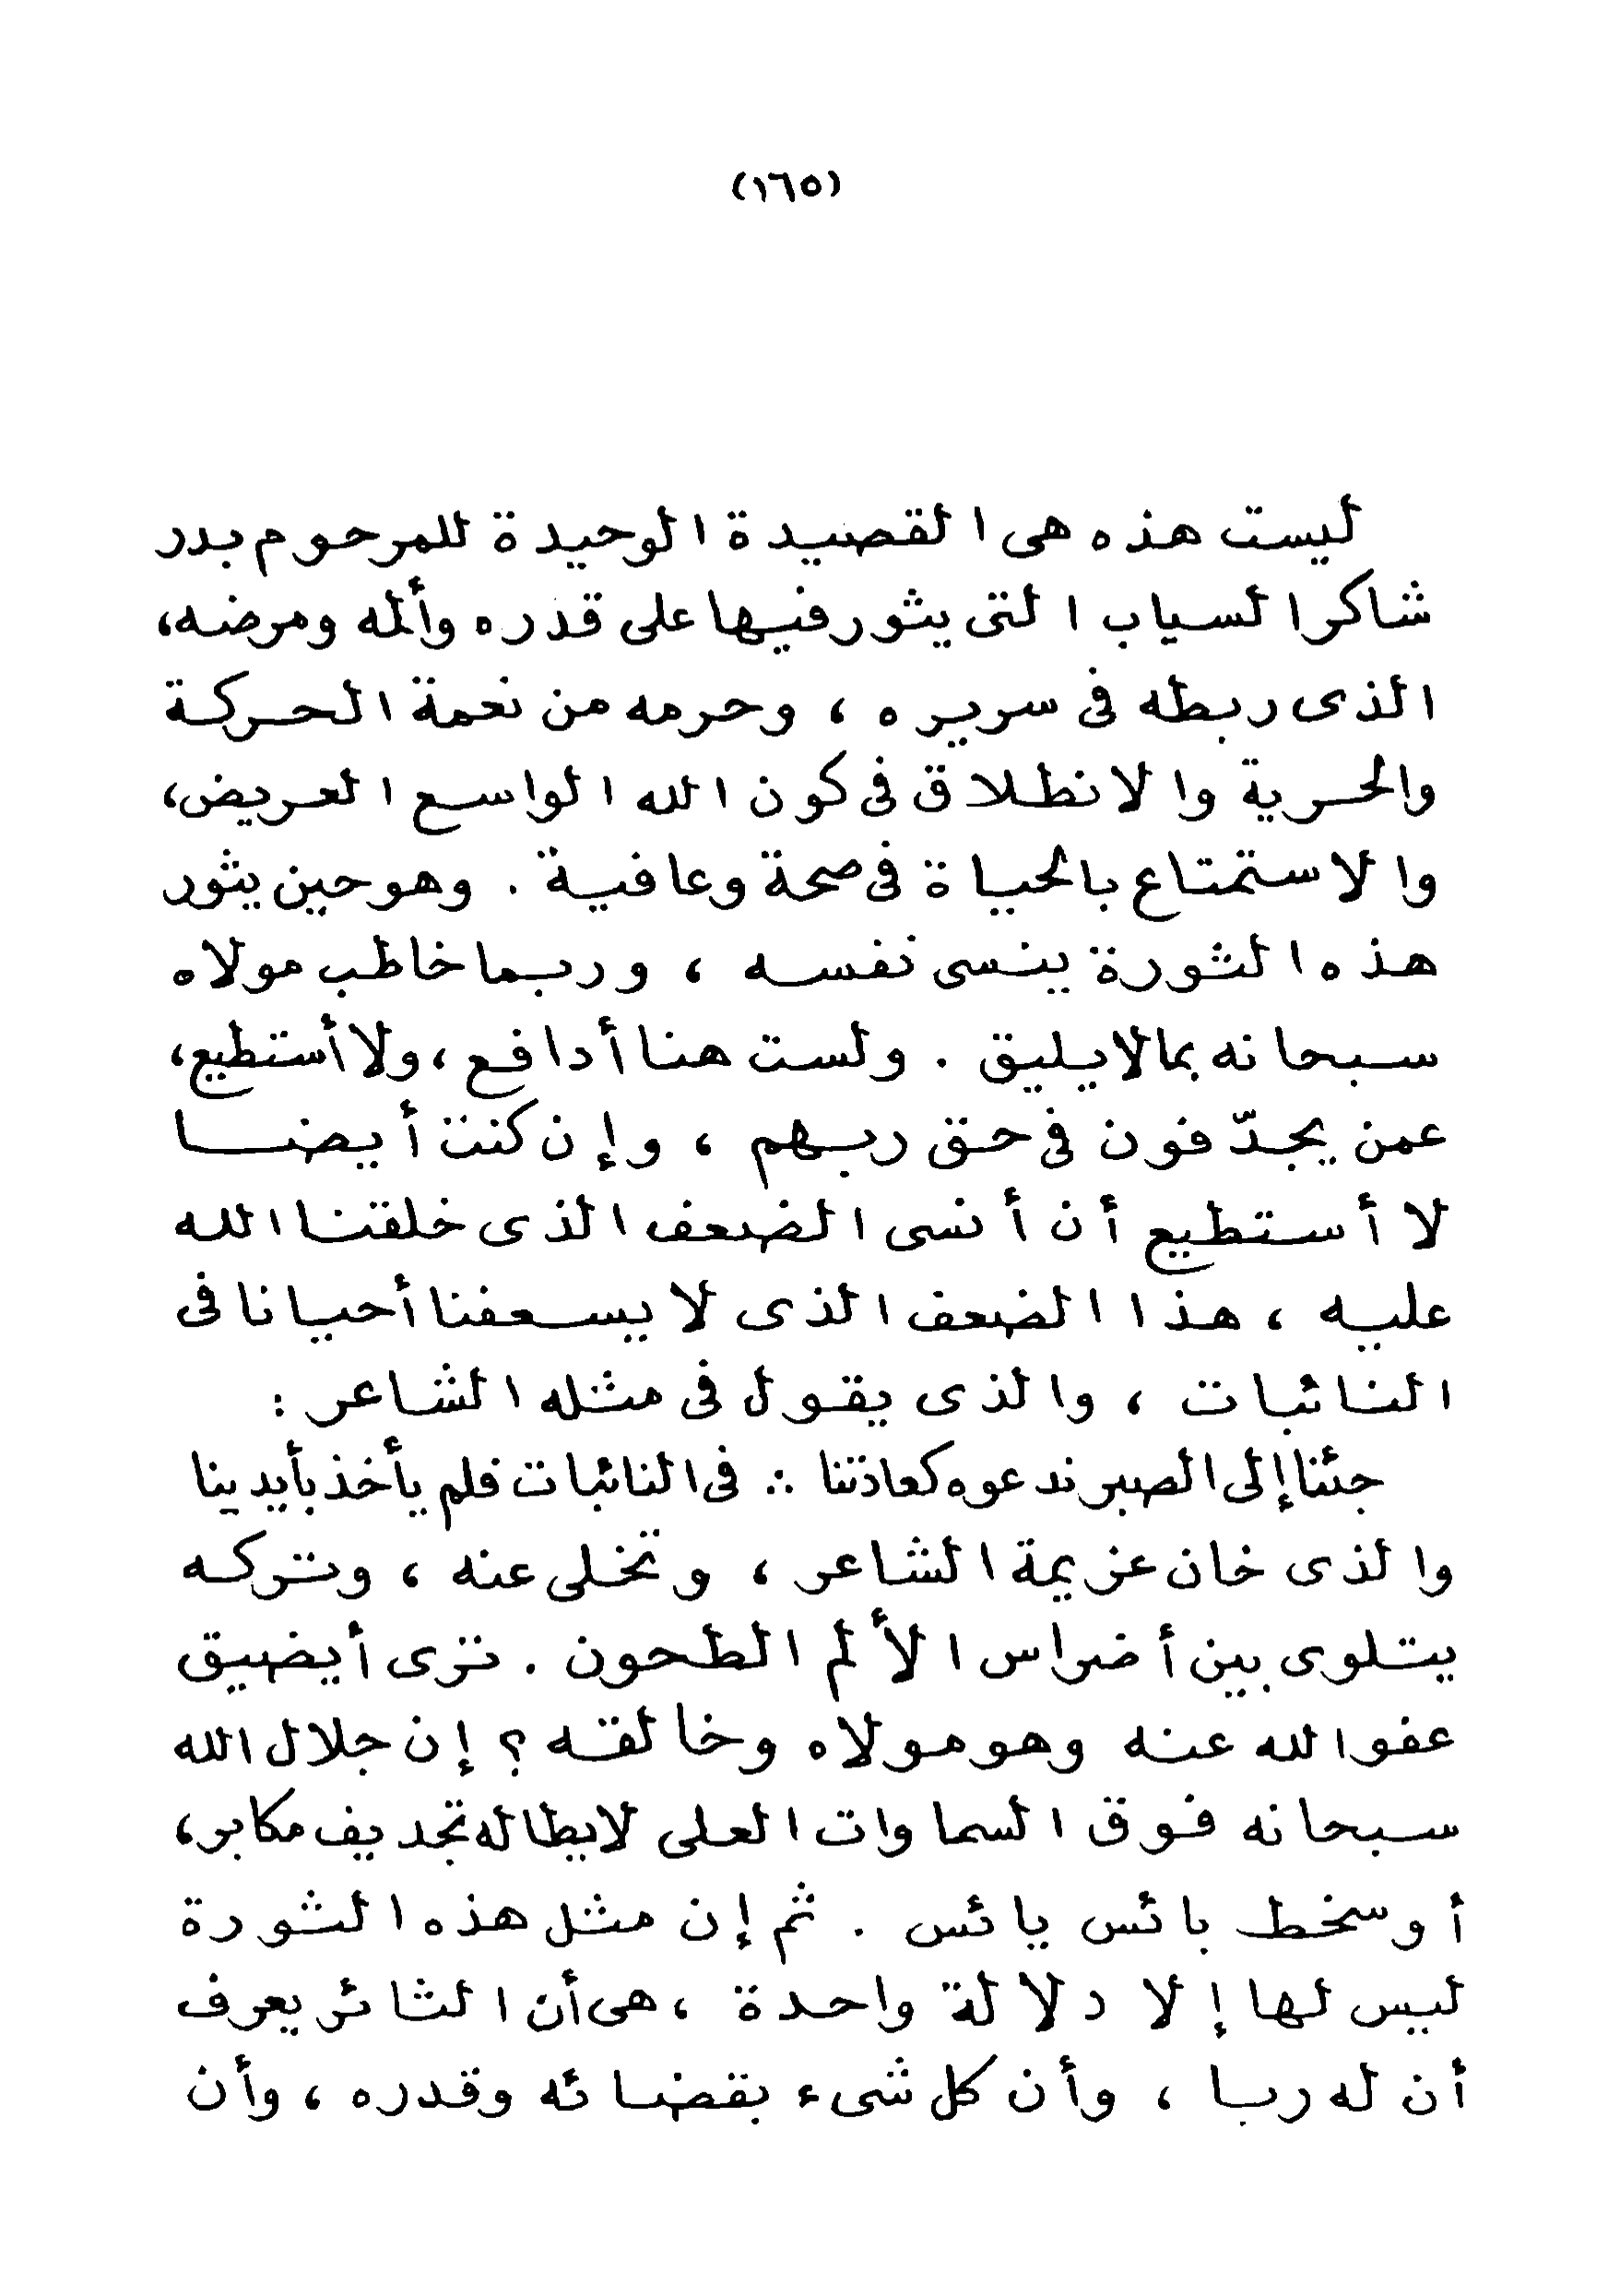 (١٦٥)
ليست هذه هى القصيدة الوحيدة للمرحوم بدر
شاكر السياب التى يثور فيها على قدره وألمه ومرضه،
الذى ربطه فى سريره ، وحرمه من نعمة الحركة
والحرية والانطلاق فى كون الله الواسع العريض،
والاستمتاع بالحياة فى صحة وعافية . وهو حين يثور
هذه الثورة ينسى نفسه ، وربما خاطب مولاه
سبحانه بمالايليق . ولست هنا أدافع ، ولا أستطيع،
عمن يجدّفون فى حق ربهم ، وإن كنت أيضا
لا أستطيع أن أنسى الضعف الذى خلقنا الله
عليه ، هذا الضعف الذى لا يسعفنا أحيانا فى
النائبات ، والذى يقول فى مثله الشاعر :
جئنا إلى الصبر ندعوه كعادتنا ∴ فى النائبات فلم يأخذ بأيدينا
والذى خان عزيمة الشاعر ، وتخلى عنه ، وتركه
يتلوى بين أضراس الألم الطحون . ترى أيضيق
عفو الله عنه وهو مولاه وخالقه ؟ إن جلال الله
سبحانه فوق السماوات العلى لايطاله تجديف مكابر،
أو سخط بائس يائس . ثم إن مثل هذه الثورة
ليس لها إلا دلالة واحدة ، هى أن الثائر يعرف
أن له ربا ، وأن كل شىء بقضائه وقدره ، وأن